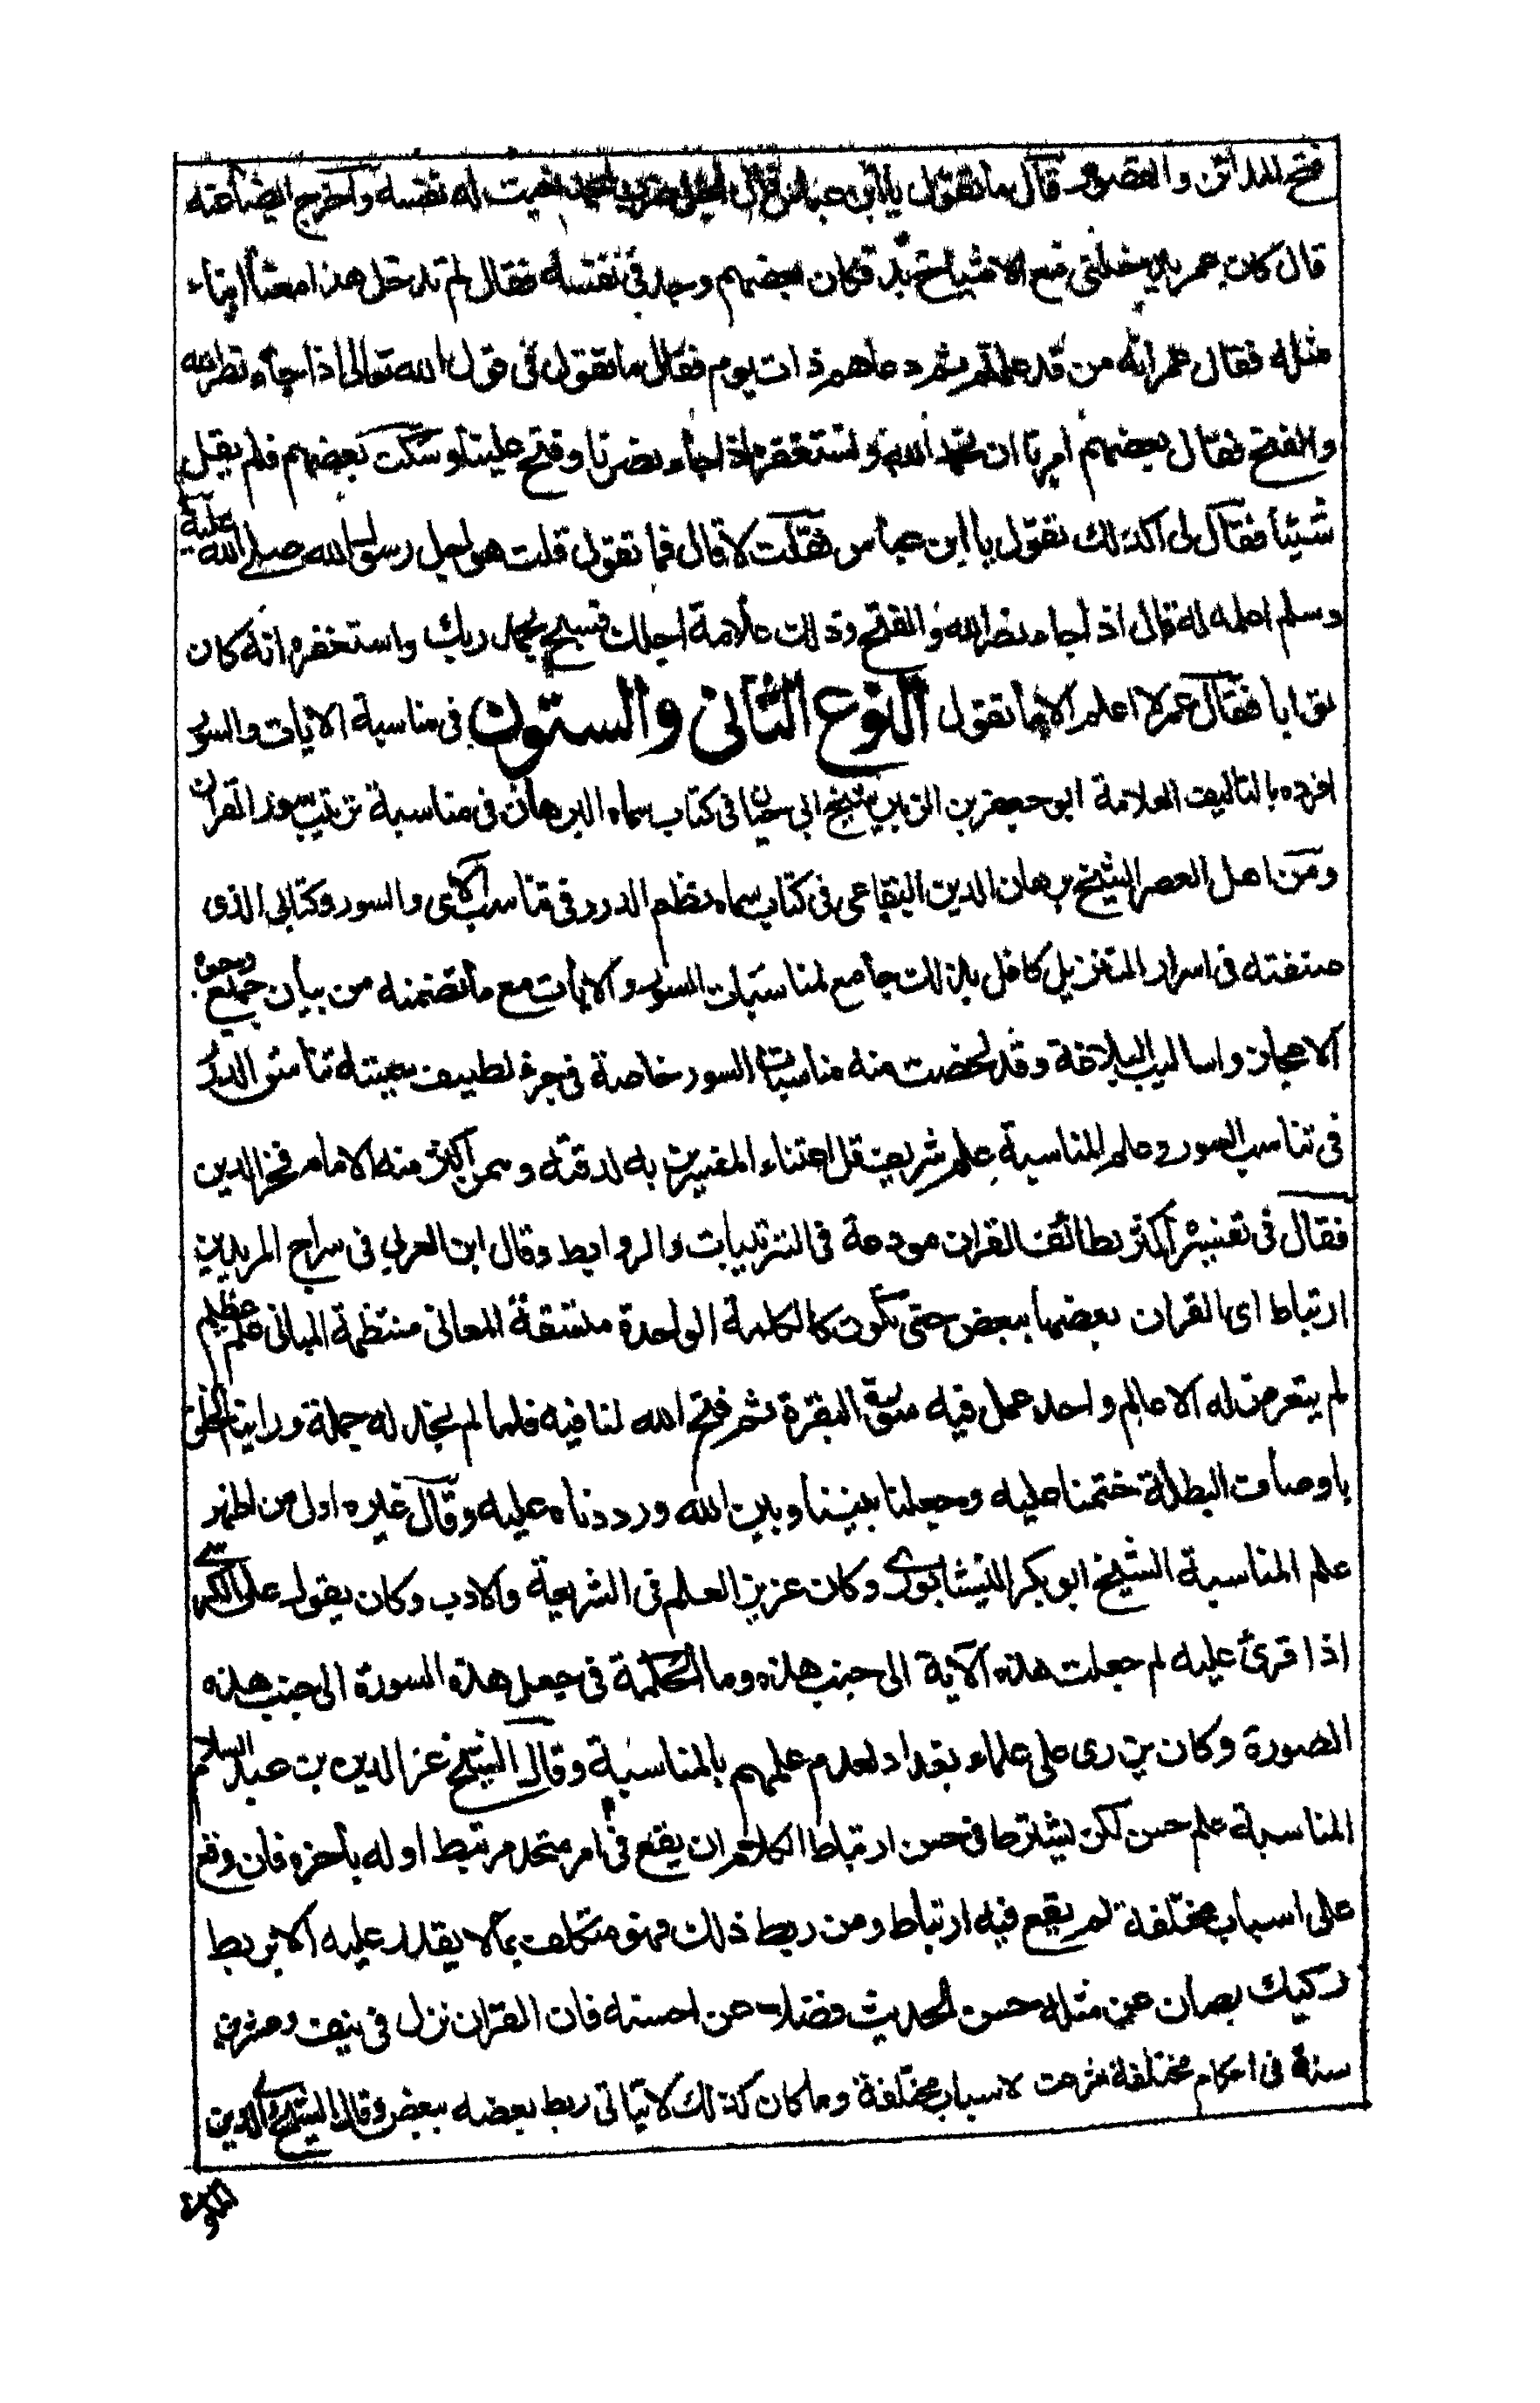 فتح المدائن والقصور قال ما تقول يا ابن عباس قال اجل ضرب لمحمد نعيت له نفسه واخرج ايضا عنه
قال كان عمر يدخلنى مع الاشياخ بدر فكان بعضهم وجد فى نفسه فقال لم تدخل هذا معنا ابناء
مثله فقال عمر انه من قد علمتم ثم دعاهم ذات يوم فقال ما تقولن فى قول الله تعالى اذا جاء نصر الله
والفتح فقال بعضهم امرنا ان نحمد الله ونستغفره اذا جاء نصرنا وفتح علينا وسكت بعضهم فلم يقل
شيئا فقال لى اكذلك تقول يا ابن عباس فقلت لا قال فما تقول قلت هو اجل رسول الله صلى الله عليه
وسلم اعلمه له قال اذا جاء نصر الله والفتح وذلك علامة اجلك فسبح بحمد ربك واستغفره انه كان
توابا فقال عمر لا اعلم الا ما تقول النوع الثانى والستون فى مناسبة الايات والسور
افرده بالتاليف العلامة ابو جعفر بن الزبير شيخ ابى حيان فى كتاب سماه البرهان فى مناسبة ترتيب سور القران
ومن اهل العصر الشيخ برهان الدين البقاعى فى كتاب سماه نظم الدرر فى تناسب الاى والسور وكتابى الذى
صنفته فى اسرار التنزيل كافل بذلك جامع لمناسبات السور والايات مع ما تضمنه من بيان جميع وجوه
الاعجاز واساليب البلاغة وقد لخصت منه مناسبات السور خاصة فى جزء لطيف سميته تناسق الدرر
فى تناسب السور وعلم المناسبة علم شريف قل اعتناء المفسرين به لدقته وممن اكثر منه الامام فخر الدين
فقال فى تفسيره اكثر لطائف القران مودعة فى الترتيبات والروابط وقال ابن العربى فى سراج المريدين
ارتباط اى القران بعضها ببعض حتى تكون كالكلمة الواحدة متسقة المعانى منتظمة المبانى علم عظيم
لم يتعرض له الا عالم واحد عمل فيه سورة البقرة ثم فتح الله لنا فيه فلما لم نجد له حملة وراينا الخلق
باوصاف البطلة ختمنا عليه وجعلنا بيننا وبين الله ورددناه عليه وقال غيره اول من اظهر
علم المناسبة الشيخ ابو بكر النيسابورى وكان عزيز العلم فى الشريعة والادب وكان يقول على الكرسى
اذا قرئ عليه لم جعلت هذه الآية الى جنب هذه وما الحكمة فى جعل هذه السورة الى جنب هذه
الصورة وكان يزرى على علماء بغداد لعدم علمهم بالمناسبة وقال الشيخ عز الدين بن عبد السلام
المناسبة علم حسن لكن يشترط فى حسن ارتباط الكلام ان يقع فى امر متحد مرتبط اوله بآخره فان وقع
على اسباب مختلفة لم يقع فيه ارتباط ومن ربط ذلك فهو متكلف بما لا يقدر عليه الا بربط
ركيك يصان عن مثله حسن الحديث فضلا عن احسنه فان القران نزل فى نيف وعشرين
سنة فى احكام مختلفة شرعت لاسباب مختلفة وما كان كذلك لا يتاتى ربط بعضه ببعض وقال الشيخ ولى الدين